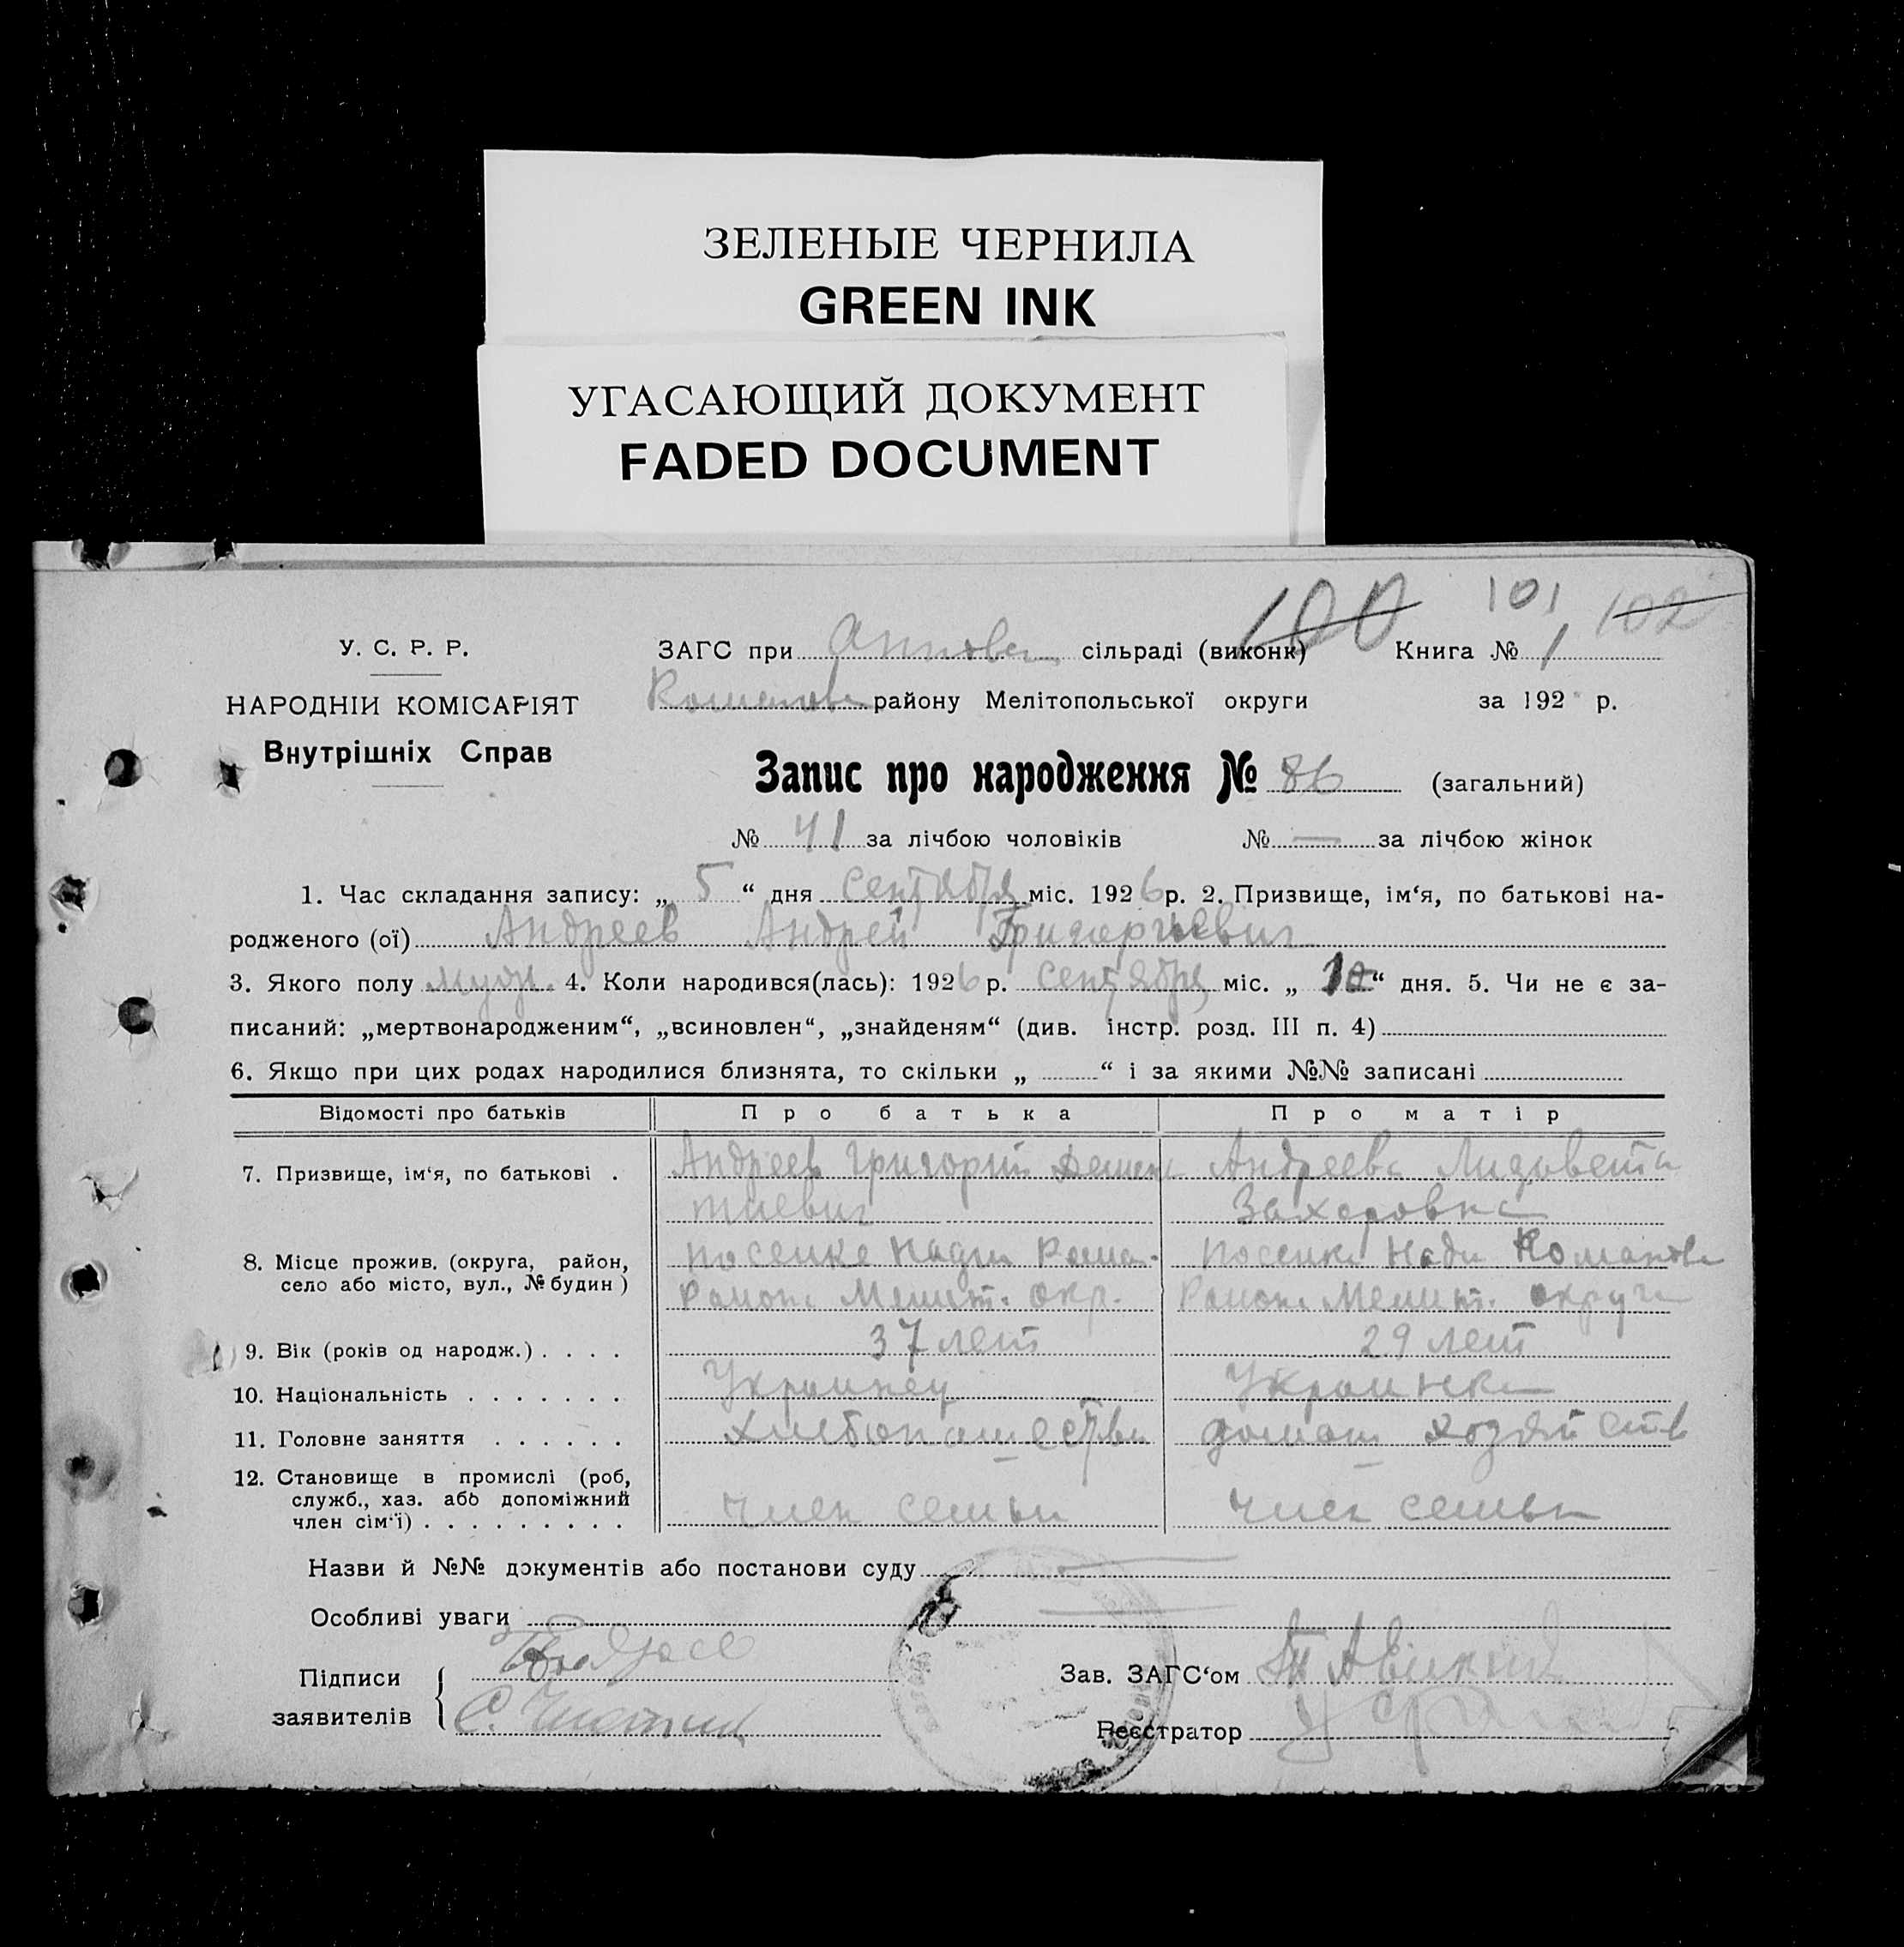 ЗЕЛЕНЫЕ ЧЕРНИЛА
GREEN INK
УГАСАЮЩИЙ ДОКУМЕНТ
FADED DOCUMENT
100 101 102
У. С. Р. Р. ЗАГС при сільраді (виконк) Книга № 1
НАРОДНІЙ КОМІСАРІЯТ району Мелітопольської округи за 192 р.
Внутрішніх Справ
Запис про народження № 86 (загальний)
№ 41 за лічбою чоловіків № — за лічбою жінок
1. Час складання запису: „ 5 “ дня сентября міс. 1926 р. 2. Призвище, ім‘я, по батькові на-
родженого (ої) Андреев Андрей Григорьевич
3. Якого полу муж. 4. Коли народився(лась): 1926 р. сентября міс. „ “ дня. 5. Чи не є за-
писаний: „мертвонародженим“, „всиновлен“, „знайденям“ (див. інстр. розд. III п. 4)
6. Якщо при цих родах народилися близнята, то скільки „ “ і за якими №№ записані
Відомості про батьків Про батька Про матір
7. Призвище, ім‘я, по батькові . Андреев Григорий Андреева Лизавета
Захаровна
8. Місце прожив. (округа, район, село або місто, вул., № будин)
Района Мелит. окр. Района Мелит. округа
9. Вік (років од народж.) . . . . 37 лет 29 лет
10. Національність . . . . . . . Украинец Украинка
11. Головне заняття . . . . . . домаш хозяйств
12. Становище в промислі (роб,
служб., хаз. або допоміжний
член сім‘ї) . . . . . . . . . член семьи член семьи
Назви й №№ документів або постанови суду
Особливі уваги
Підписи Зав. ЗАГС‘ом
заявителів Реєстратор